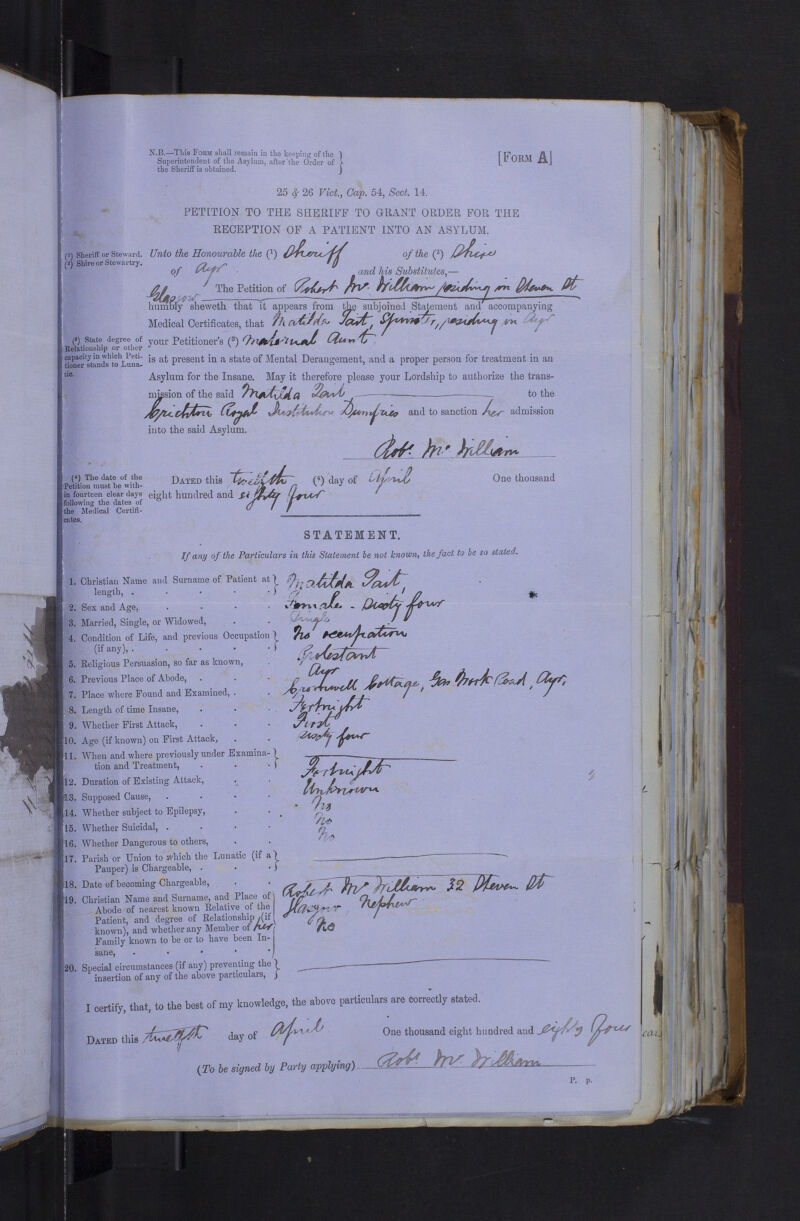 N.B.—This Form shall remain in the keeping of the
Superintendent of the Asylum, after the Order of
the Sheriff is obtained.
[Form A]
25 & 26 Vict., Cap. 54, Sect. 14.
PETITION TO THE SHERIFF TO GRANT ORDER FOR THE
RECEPTION OF A PATIENT INTO AN ASYLUM.
(¹) Sheriff or Steward.
(²) Shire or Stewartry.
Unto the Honourable the (¹) Sheriff of the (²) Shire
of Ayr and his Substitutes,—
The Petition of Robert Mc William residing in Steven St
Glasgow
humbly sheweth that it appears from the subjoined Statement and accompanying
Medical Certificates, that Matilda Tait, Spinster, residing in Ayr
(³) State degree of
Relationship or other
capacity in which Peti-
tioner stands to Luna-
tic.
your Petitioner's (³) maternal Aunt
is at present in a state of Mental Derangement, and a proper person for treatment in an
Asylum for the Insane. May it therefore please your Lordship to authorize the trans-
mission of the said Matilda Tait to the
Crichton Royal Institution Dumfries and to sanction her admission
into the said Asylum.
Robt. Mc William
(⁴) The date of the
Petition must be with-
in fourteen clear days
following the dates of
the Medical Certifi-
cates.
Dated this twelfth (⁴) day of April One thousand
eight hundred and eighty four
STATEMENT.
If any of the Particulars in this Statement be not known, the fact to be so stated.
1. Christian Name and Surname of Patient at
length, . Matilda Tait
2. Sex and Age, Female - Sixty four
3. Married, Single, or Widowed, Single
4. Condition of Life, and previous Occupation
(if any), . No occupation
5. Religious Persuasion, so far as known, Protestant
6. Previous Place of Abode, Ayr
7. Place where Found and Examined, . Cromwell Cottage, Gas Work Road, Ayr.
8. Length of time Insane, Fortnight
9. Whether First Attack, First
10. Age (if known) on First Attack, Sixty four
11. When and where previously under Examina-
tion and Treatment,
12. Duration of Existing Attack, Fortnight
13. Supposed Cause, Unknown
14. Whether subject to Epilepsy, No
15. Whether Suicidal, . No
16. Whether Dangerous to others, No
17. Parish or Union to which the Lunatic (if a
Pauper) is Chargeable, .
18. Date of becoming Chargeable,
19. Christian Name and Surname, and Place of
Abode of nearest known Relative of the
Patient, and degree of Relationship (if
known), and whether any Member of her
Family known to be or to have been In-
sane,
Robert Mc William 32 Steven St
Glasgow, Nephew
No
20. Special circumstances (if any) preventing the
insertion of any of the above particulars,
I certify, that, to the best of my knowledge, the above particulars are correctly stated.
Dated this twelfth day of April One thousand eight hundred and eighty four
(To be signed by Party applying) Robt. Mc William
P. p.